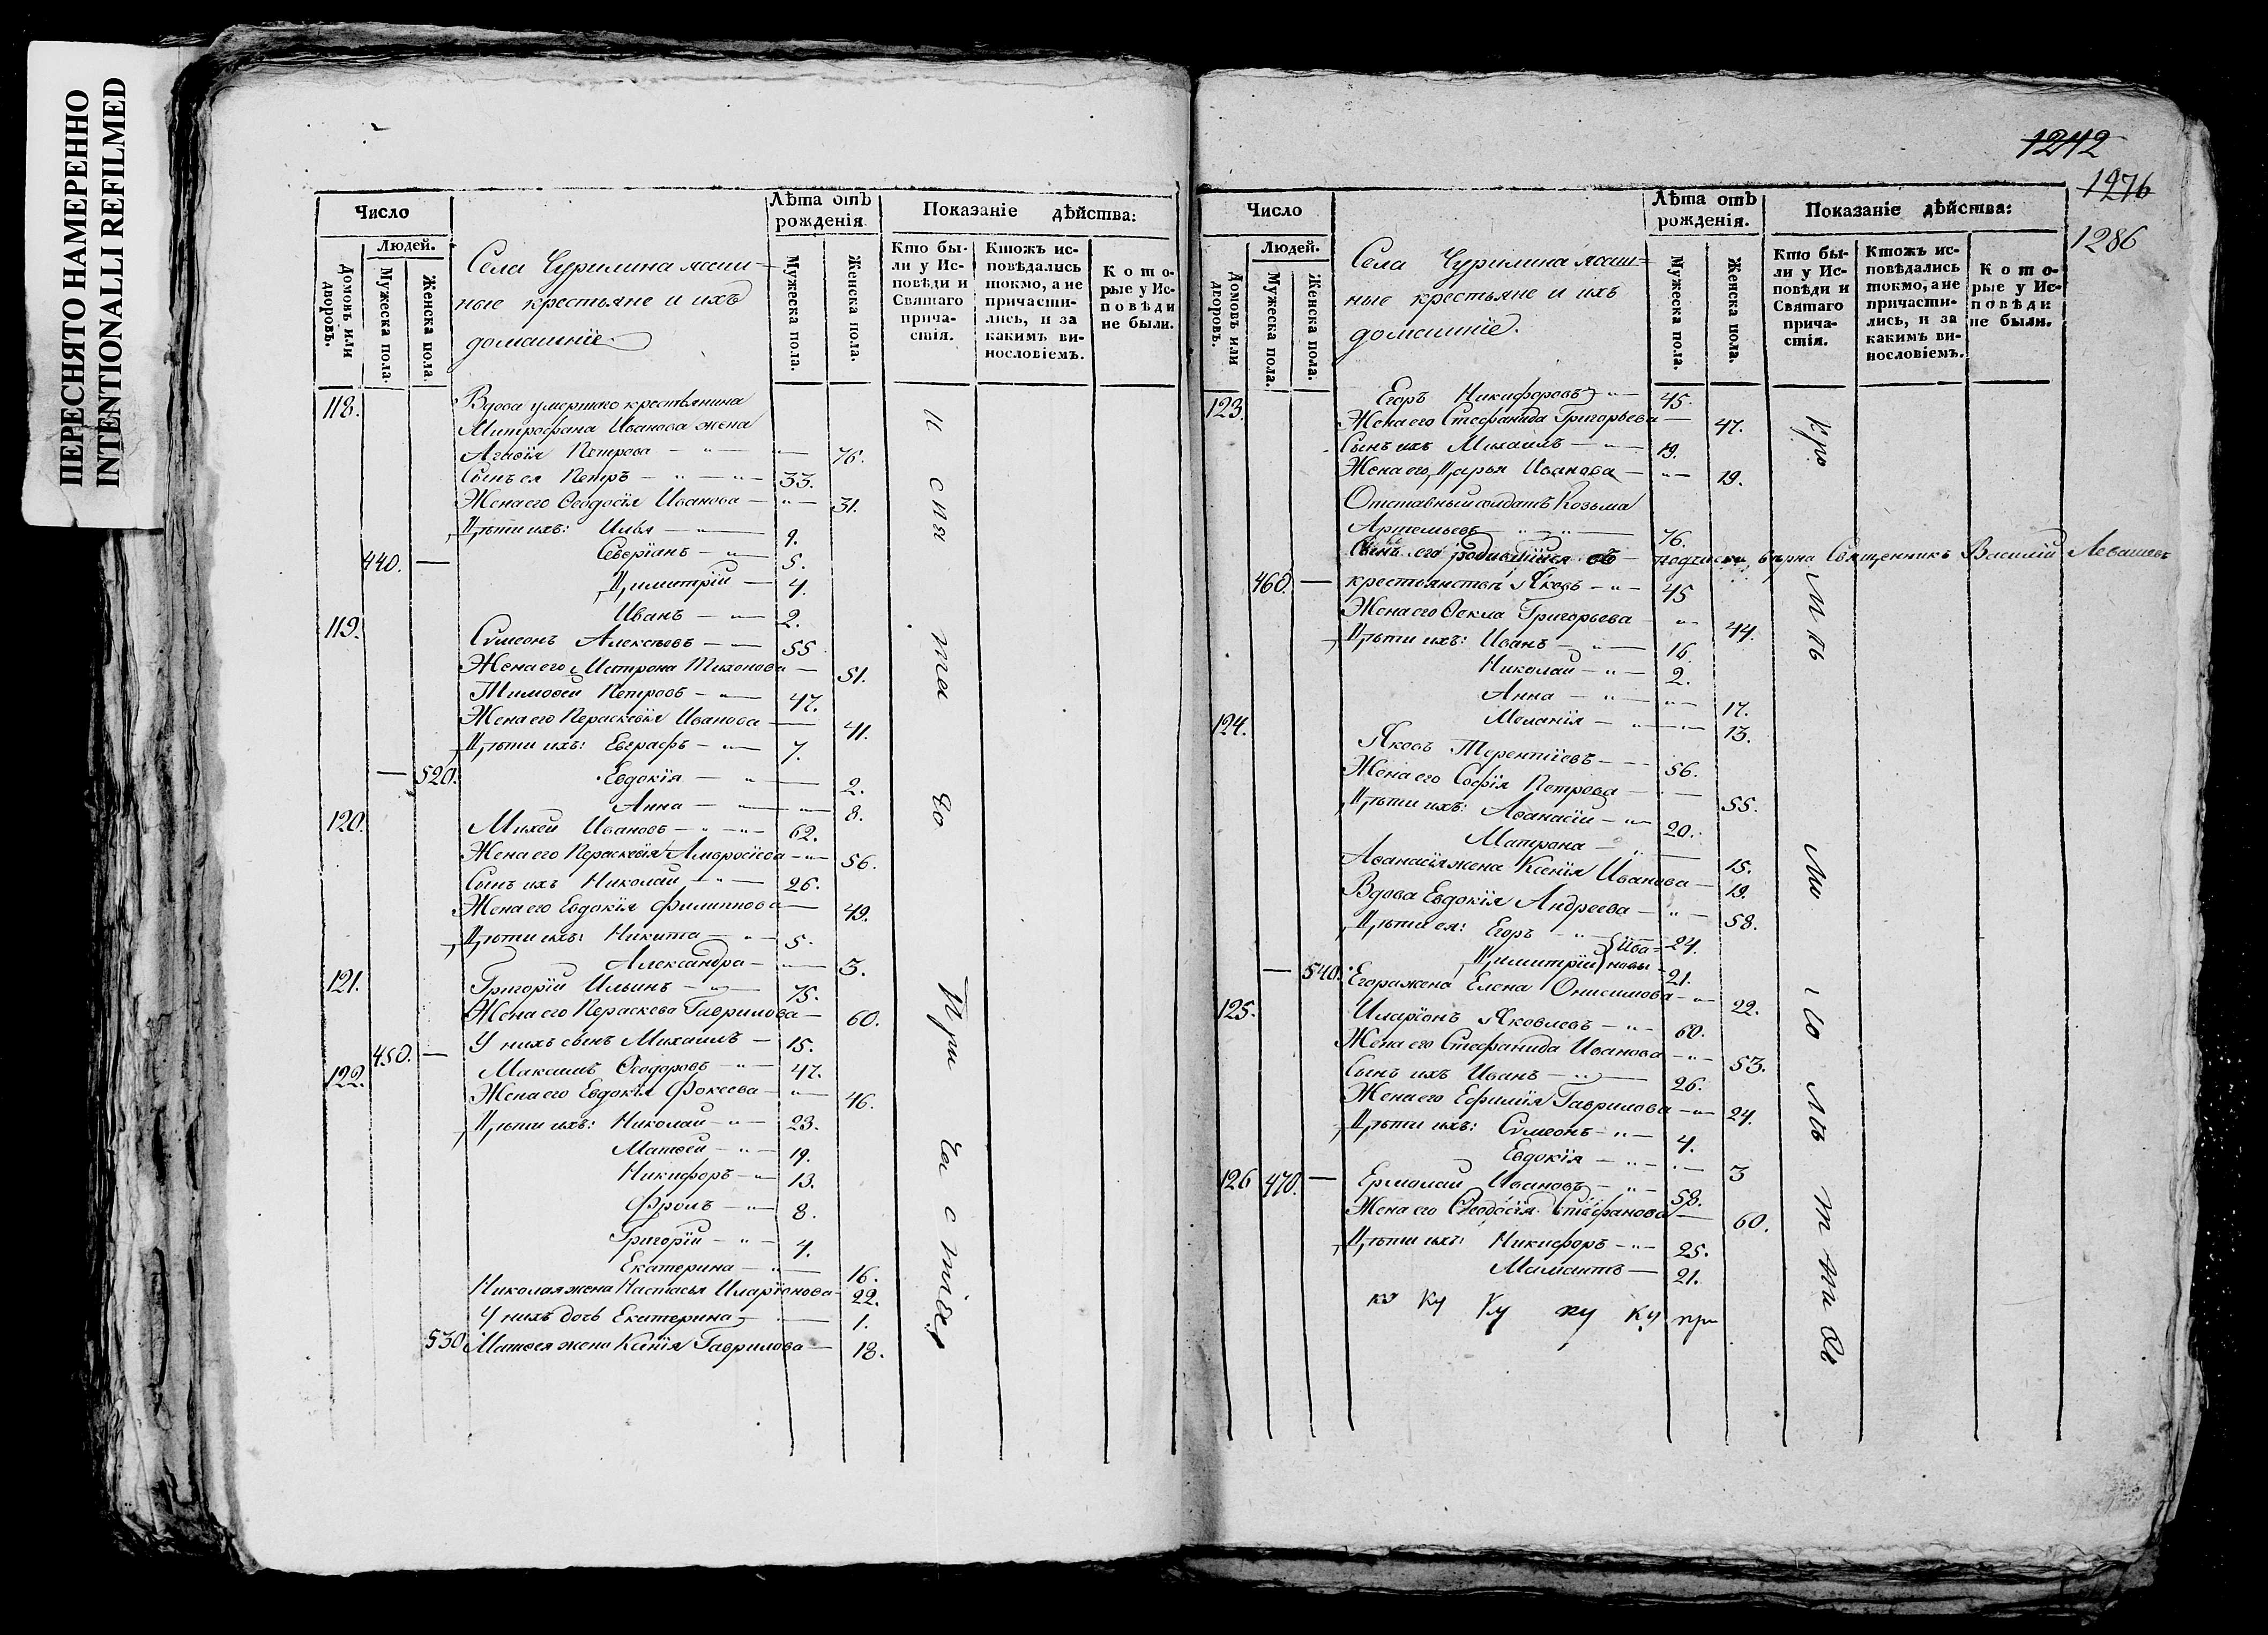 ПЕРЕСНЯТО НАМЕРЕННО
INTENTIONALLI REFILMED
Число
Людей.
Домовъ или дворовъ.
Мужеска пола.
Женска пола.
Села Чурилина ясаш-
ные крестьяне и ихъ
домашніе.
Лѣта отъ рожденія
Мужеска пола.
Женска пола.
Показаніе дѣйства:
Кто бы-
ли у Ис-
повѣди и
Святаго
прича-
стія.
Ктожъ ис-
повѣдались
токмо, а не
причасти-
лись, и за
какимъ ви-
нословіемъ.
Кото-
рые у Ис-
повѣди
не были.
118. Вдова умершаго крестьянина
Митрофана Иванова жена
Агафія Петрова — „ — 76.
Сынъ ея Петръ — „ — 33.
Жена его Ѳеодосія Иванова — „ — 31.
Дѣти ихъ: Илья — „ — 9.
Северіанъ — „ — 5.
440. — Димитрій — 4.
Иванъ — „ — 2.
119. Сѵмеонъ Алексѣевъ — „ — 55
Жена его Матрона Тихонова — 51.
Тимоѳей Петровъ — „ — 47.
Жена его Пераскевія Иванова — 41.
Дѣти ихъ: Евграфъ — „ — 7.
— 520. Евдокія — „ — 2.
Анна — „ — 8.
120. Михей Ивановъ — „ — 62.
Жена его Пераскевія Амвросіева — „ — 56.
Сынъ ихъ Николай — „ — 26.
Жена его Евдокія Филиппова — 49.
Дѣти ихъ: Никита — „ — 5.
Александра — „ — 3.
121. Григорій Ильинъ — „ — 75.
Жена его Пераскева Гаврилова — 60.
У нихъ сынъ Михаилъ — 15.
122. 450. — Максимъ Ѳеодоровъ — „ — 47.
Жена его Евдокія Фокеева — „ — 46.
Дѣти ихъ: Николай — „ — 23.
Матѳей — „ — 19.
Никифоръ — „ — 13.
Фролъ — „ — 8.
Григорій — „ — 4.
Екатерина — „ — 16.
Николая жена Настасья Иларіонова 22.
У нихъ дочь Екатерина — 1.
530 Матѳея жена Ксенія Гаврилова — 18.
и
свя
та
го
При
ча
стія
1242
1276
1286
Число
Людей.
Домовъ или дворовъ.
Мужеска пола.
Женска пола.
Села Чурилина ясаш-
ные крестьяне и ихъ
домашніе.
Лѣта отъ рожденія.
Мужеска пола.
Женска пола.
Показаніе дѣйства:
Кто бы-
ли у Ис-
повѣди и
Святаго
прича-
стія.
Ктожъ ис-
повѣдались
токмо, а не
причасти-
лись, и за
какимъ ви-
нословіемъ.
Кото-
рые у Ис-
повѣди
не были.
123. Егоръ Никифоровъ — „ — 45.
Жена его Стефанида Григорьева — 47.
Сынъ ихъ Михаилъ — „ — 19.
Жена его Дарья Иванова — „ — 19.
Отставный солдатъ Козьма
Артемьевъ — „ — 76.
Сынъ его родившійся въ — подписку вѣрна Священникъ Василій Левашевъ
460. — крестьянствѣ Яковъ — „ — 45
Жена его Ѳекла Григорьева — „ — 44.
Дѣти ихъ: Иванъ — „ — 16.
Николай — „ — 2.
Анна — „ — 17.
Меланія — „ — 13.
124. Яковъ Терентіевъ — 56.
Жена его Софія Петрова — 55.
Дѣти ихъ: Аѳанасій — „ — 20.
Матрона — „ — 15.
Аѳанасія жена Ксенія Иванова — 19.
Вдова Евдокія Андреева — „ — 58.
Дѣти ея: Егоръ — „ — } Ива- 24.
Димитрій } новы 21.
— 540. Егора жена Елена Онисимова — „ 22.
125. Иларіонъ Яковлевъ — „ — 60.
Жена его Стефанида Иванова — „ — 53.
Сынъ ихъ Иванъ — „ — 26.
Жена его Ефимія Гаврилова — „ — 24.
Дѣти ихъ: Сѵмеонъ — „ — 4.
Евдокія — „ — 3
126 470. — Ермолай Ивановъ — „ — 58.
Жена его Ѳеодосія Стефанова — 60.
Дѣти ихъ: Никифоръ — „ — 25.
Мамантъ — 21.
ку ку ку ку ку при
кро
мѣ